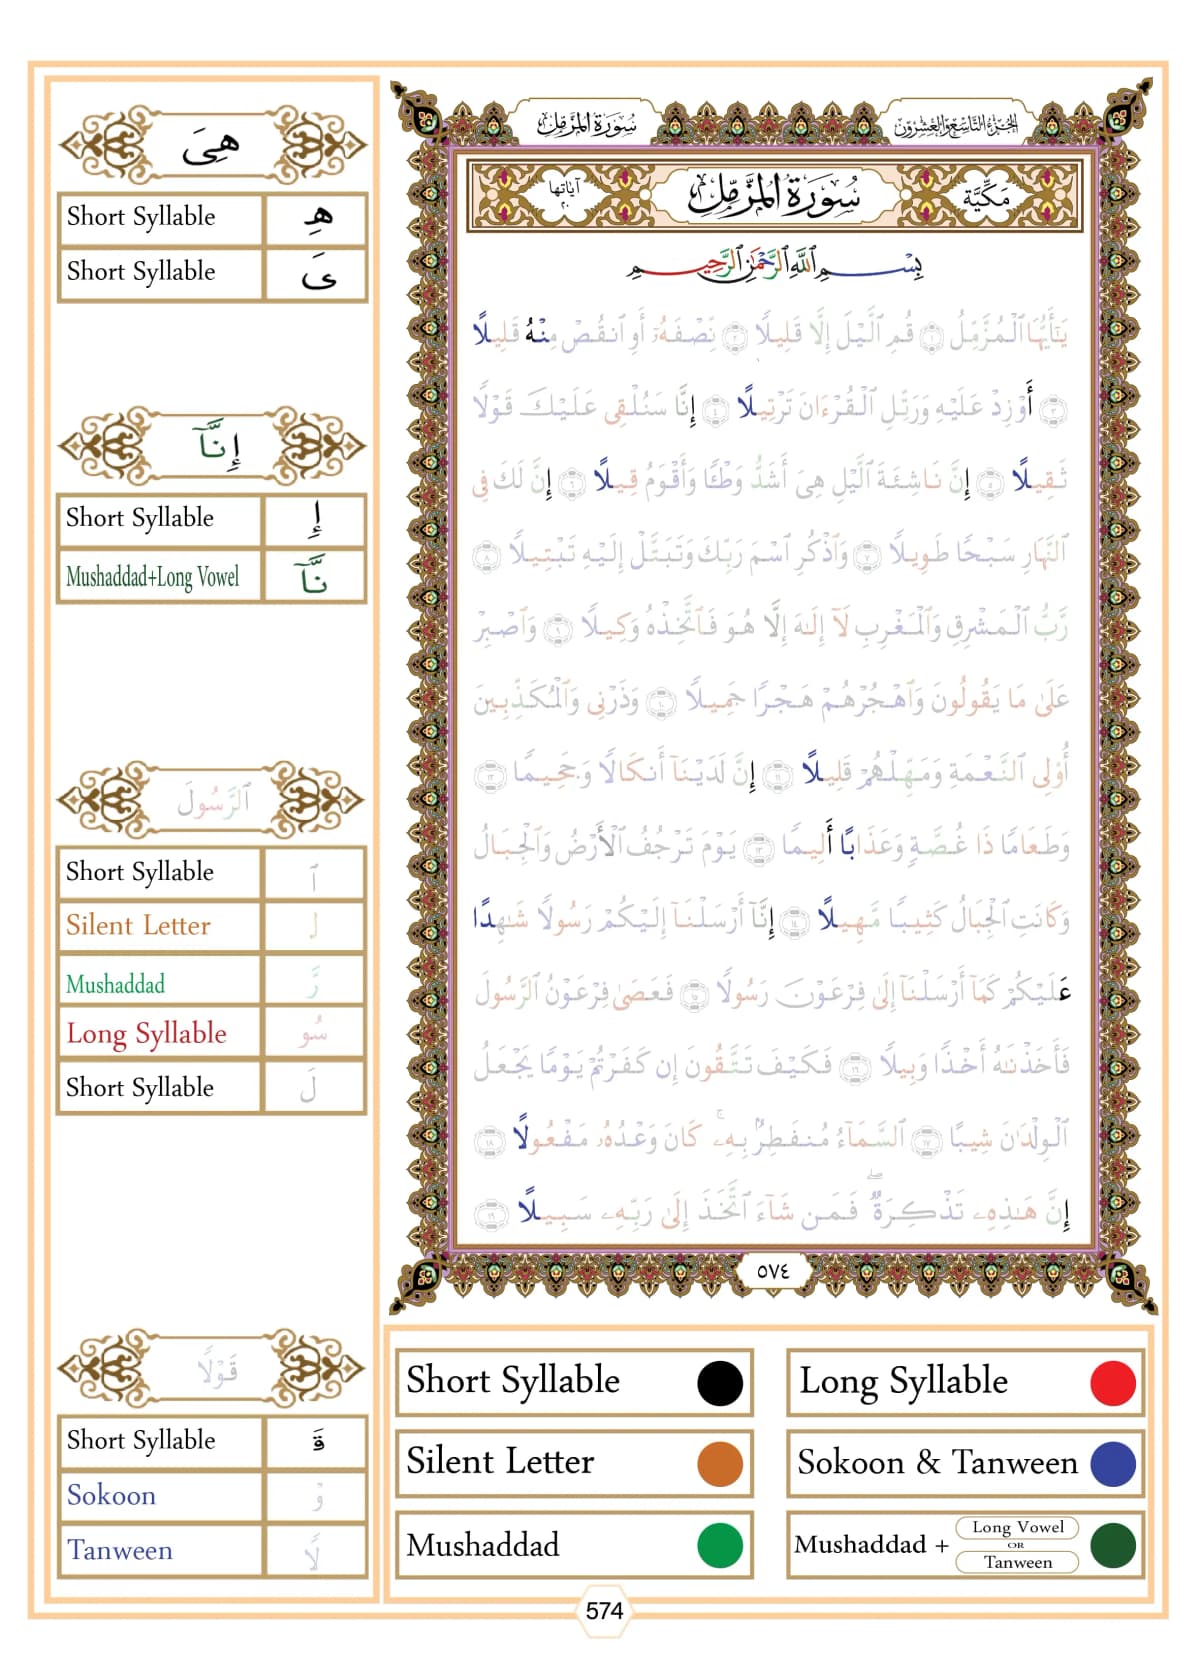 سُورَةُ المُزَّمِّل
الجُزْءُ التَّاسِعُ وَالعِشْرُونَ
مَكِّيَّة
سُورَةُ المُزَّمِّل
آيَاتُهَا ٢٠
بِسْمِ ٱللَّهِ ٱلرَّحْمَٰنِ ٱلرَّحِيمِ
يَٰٓأَيُّهَا ٱلْمُزَّمِّلُ ١ قُمِ ٱلَّيْلَ إِلَّا قَلِيلًا ٢ نِّصْفَهُۥٓ أَوِ ٱنقُصْ مِنْهُ قَلِيلًا
٣ أَوْ زِدْ عَلَيْهِ وَرَتِّلِ ٱلْقُرْءَانَ تَرْتِيلًا ٤ إِنَّا سَنُلْقِى عَلَيْكَ قَوْلًا
ثَقِيلًا ٥ إِنَّ نَاشِئَةَ ٱلَّيْلِ هِىَ أَشَدُّ وَطْـًٔا وَأَقْوَمُ قِيلًا ٦ إِنَّ لَكَ فِى
ٱلنَّهَارِ سَبْحًا طَوِيلًا ٧ وَٱذْكُرِ ٱسْمَ رَبِّكَ وَتَبَتَّلْ إِلَيْهِ تَبْتِيلًا ٨
رَّبُّ ٱلْمَشْرِقِ وَٱلْمَغْرِبِ لَآ إِلَٰهَ إِلَّا هُوَ فَٱتَّخِذْهُ وَكِيلًا ٩ وَٱصْبِرْ
عَلَىٰ مَا يَقُولُونَ وَٱهْجُرْهُمْ هَجْرًا جَمِيلًا ١٠ وَذَرْنِى وَٱلْمُكَذِّبِينَ
أُو۟لِى ٱلنَّعْمَةِ وَمَهِّلْهُمْ قَلِيلًا ١١ إِنَّ لَدَيْنَآ أَنكَالًا وَجَحِيمًا ١٢
وَطَعَامًا ذَا غُصَّةٍ وَعَذَابًا أَلِيمًا ١٣ يَوْمَ تَرْجُفُ ٱلْأَرْضُ وَٱلْجِبَالُ
وَكَانَتِ ٱلْجِبَالُ كَثِيبًا مَّهِيلًا ١٤ إِنَّآ أَرْسَلْنَآ إِلَيْكُمْ رَسُولًا شَٰهِدًا
عَلَيْكُمْ كَمَآ أَرْسَلْنَآ إِلَىٰ فِرْعَوْنَ رَسُولًا ١٥ فَعَصَىٰ فِرْعَوْنُ ٱلرَّسُولَ
فَأَخَذْنَٰهُ أَخْذًا وَبِيلًا ١٦ فَكَيْفَ تَتَّقُونَ إِن كَفَرْتُمْ يَوْمًا يَجْعَلُ
ٱلْوِلْدَٰنَ شِيبًا ١٧ ٱلسَّمَآءُ مُنفَطِرٌۢ بِهِۦ ۚ كَانَ وَعْدُهُۥ مَفْعُولًا ١٨
إِنَّ هَٰذِهِۦ تَذْكِرَةٌ ۖ فَمَن شَآءَ ٱتَّخَذَ إِلَىٰ رَبِّهِۦ سَبِيلًا ١٩
٥٧٤
هِىَ
Short Syllable هِ
Short Syllable ىَ
إِنَّآ
Short Syllable إِ
Mushaddad+Long Vowel نَّآ
ٱلرَّسُولَ
Short Syllable ٱ
Silent Letter ل
Mushaddad رَّ
Long Syllable سُو
Short Syllable لَ
قَوْلًا
Short Syllable قَ
Sokoon وْ
Tanween لًا
Short Syllable
Long Syllable
Silent Letter
Sokoon & Tanween
Mushaddad
Mushaddad + Long Vowel OR Tanween
574